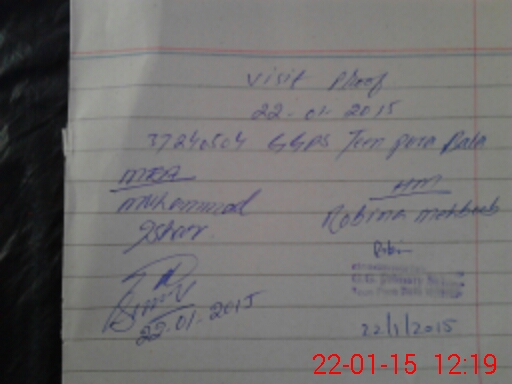 Visit Proof
22-01-2015
37240504 GGPS Tern pura Bala
MEA
HM
Muhammad
Robina Mehboob
Robi
22-01-2015
22/1/2015
22-01-15 12:19